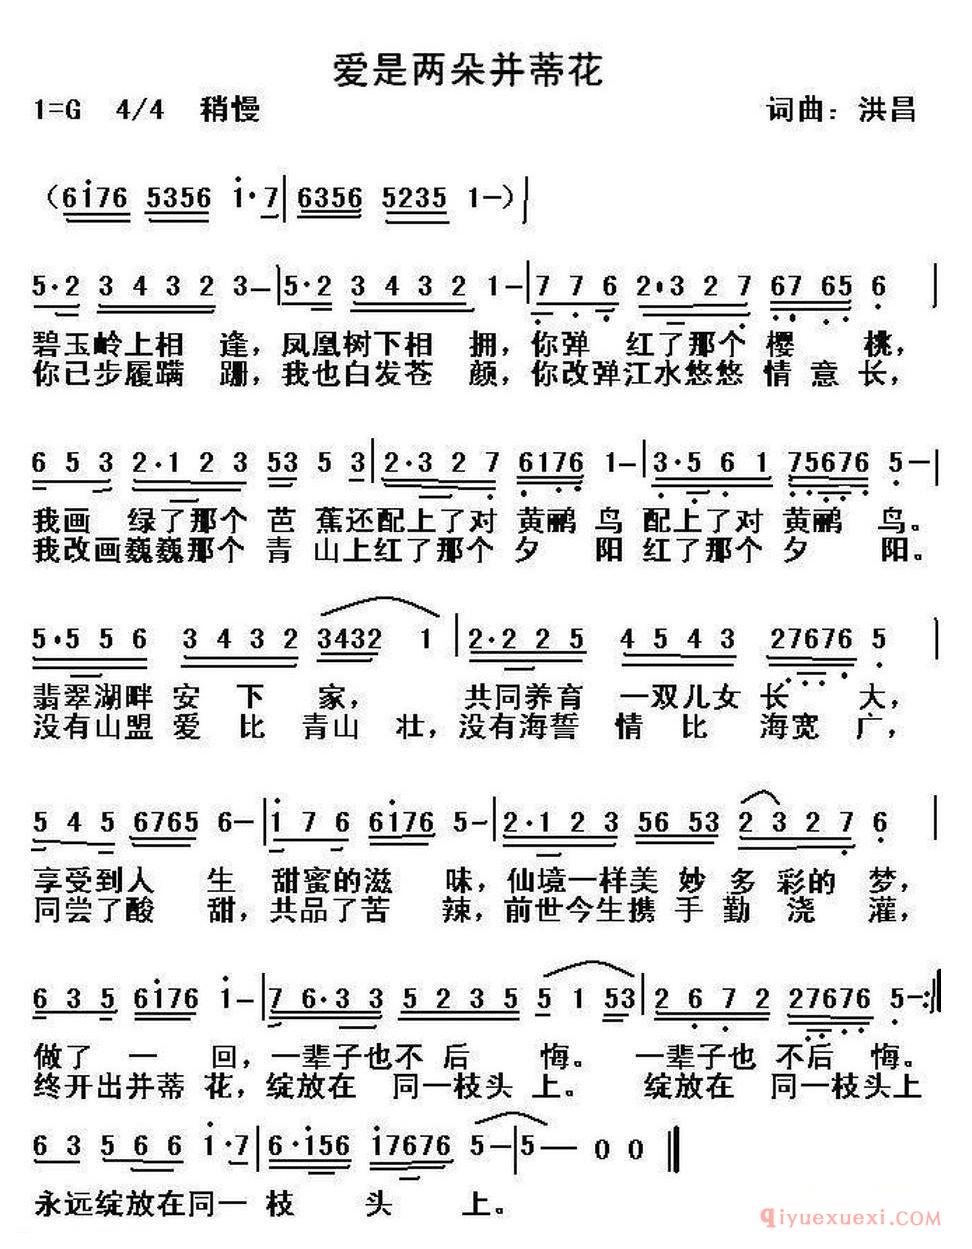 爱是两朵并蒂花
1=G 4/4 稍慢 词曲：洪昌
（6i76 5356 i·7|6356 5235 1—）|
5·2 3432 3—|5·2 3432 1—|7 7 6 2·327 67 65 6|
碧玉岭上相 逢，凤凰树下相 拥，你弹 红了那个 樱 桃，
你已步履蹒 跚，我也白发苍 颜，你改弹江水悠悠 情意长，
6 5 3 2·123 53 5 3|2·327 6176 1—|3·561 75676 5—|
我画 绿了那个 芭 蕉还配上了对 黄鹂 鸟 配上了对 黄鹂 鸟。
我改画巍巍那个 青 山上红了那个 夕 阳红了那个 夕 阳。
5·556 3432 3432 1|2·225 4543 27676 5|
翡翠湖畔 安 下 家， 共同养育 一双儿女 长 大，
没有山盟 爱 比 青山 壮，没有海誓 情 比 海宽 广，
5 4 5 6765 6—|i 7 6 6i76 5—|2·123 56 53 2327 6|
享受到人 生 甜蜜的滋 味，仙境一样美 妙 多 彩的 梦，
同尝了酸 甜，共品了苦 辣，前世今生携 手 勤 浇 灌，
6 3 5 6i76 i—|7 6·3 3 5235 5 1 53|2 6 7 2 27676 5—:|
做了 一 回，一辈子也不 后 悔。 一辈子也 不后 悔。
终开出并蒂 花，绽放在 同一枝头 上。 绽放在 同一枝头上
6 3 5 6 6 i·7|6·i56 i7676 5—|5— 0 0‖
永远绽放在同一 枝 头 上。
qiyuexuexi.COM